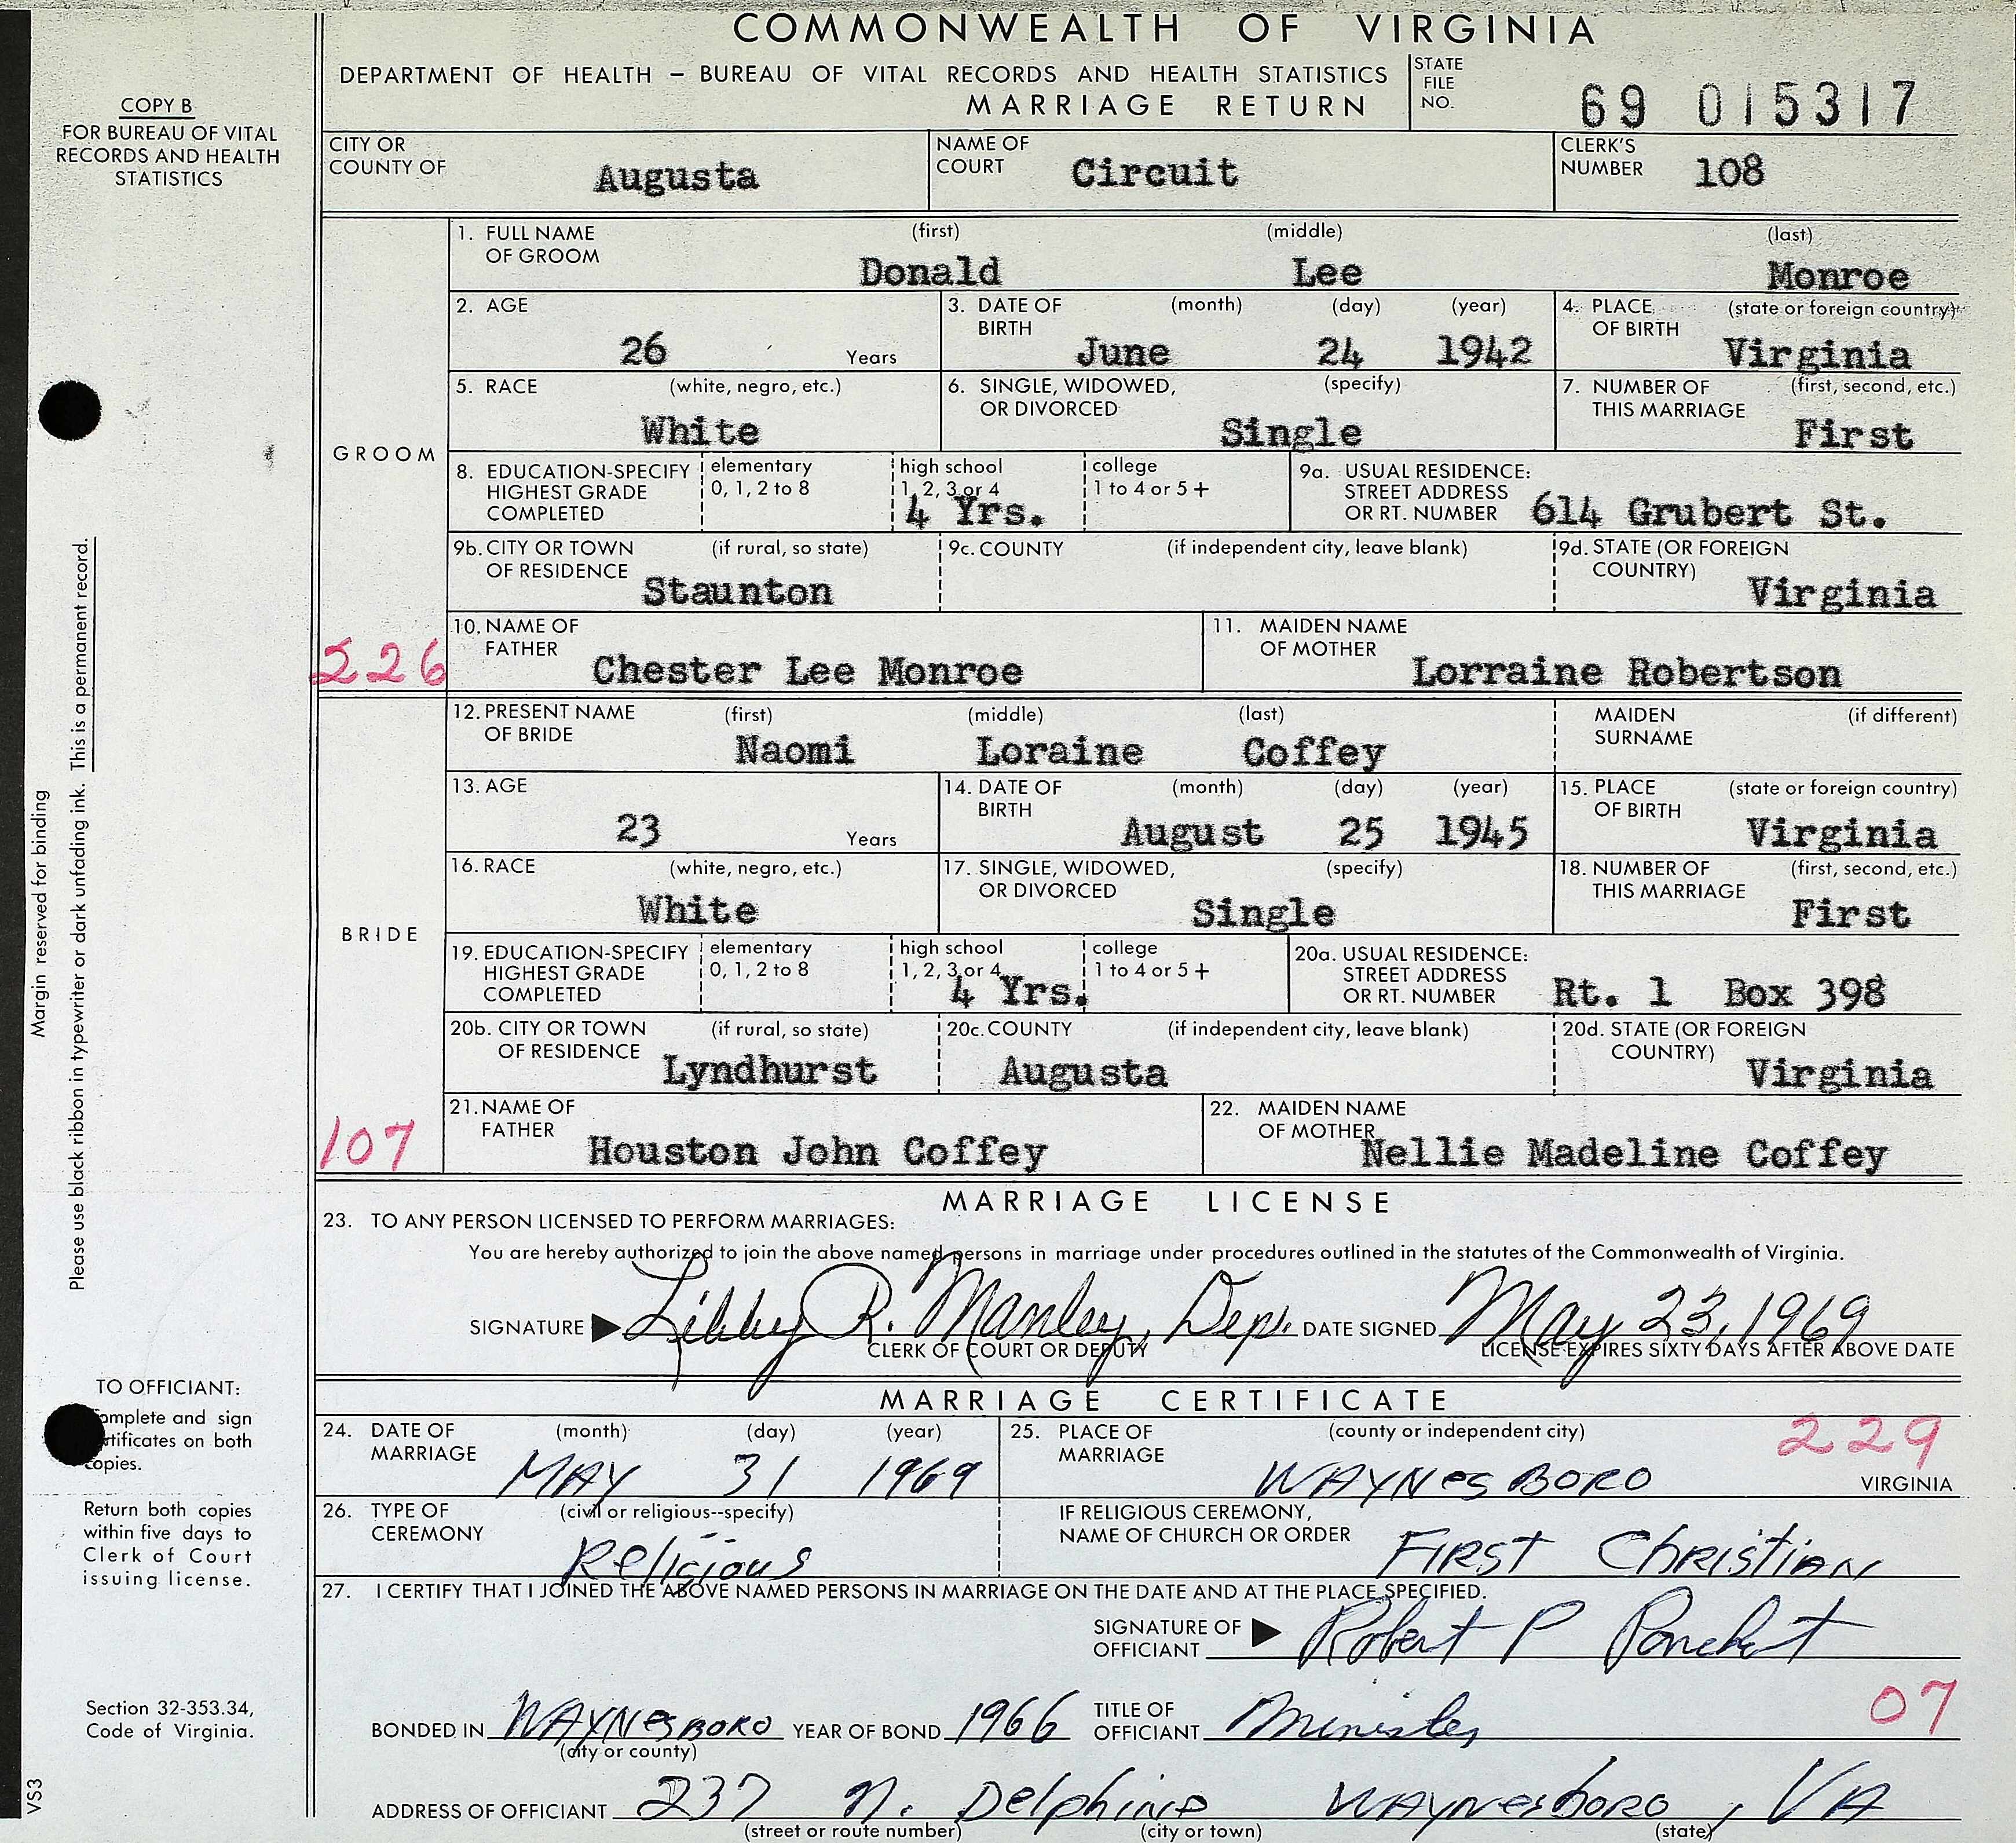 COMMONWEALTH OF VIRGINIA
DEPARTMENT OF HEALTH – BUREAU OF VITAL RECORDS AND HEALTH STATISTICS
MARRIAGE RETURN
STATE FILE NO. 69 015317
COPY B
FOR BUREAU OF VITAL
RECORDS AND HEALTH
STATISTICS
CITY OR COUNTY OF Augusta
NAME OF COURT Circuit
CLERK'S NUMBER 108
GROOM
1. FULL NAME OF GROOM (first) (middle) (last)
Donald Lee Monroe
2. AGE 26 Years
3. DATE OF BIRTH (month) (day) (year)
June 24 1942
4. PLACE OF BIRTH (state or foreign country)
Virginia
5. RACE (white, negro, etc.)
White
6. SINGLE, WIDOWED, OR DIVORCED (specify)
Single
7. NUMBER OF THIS MARRIAGE (first, second, etc.)
First
8. EDUCATION-SPECIFY HIGHEST GRADE COMPLETED
elementary 0, 1, 2 to 8
high school 1, 2, 3 or 4
4 Yrs.
college 1 to 4 or 5+
9a. USUAL RESIDENCE: STREET ADDRESS OR RT. NUMBER 614 Grubert St.
9b. CITY OR TOWN OF RESIDENCE (if rural, so state)
Staunton
9c. COUNTY (if independent city, leave blank)
9d. STATE (OR FOREIGN COUNTRY)
Virginia
226
10. NAME OF FATHER Chester Lee Monroe
11. MAIDEN NAME OF MOTHER Lorraine Robertson
BRIDE
12. PRESENT NAME OF BRIDE (first) (middle) (last)
Naomi Loraine Coffey
MAIDEN SURNAME (if different)
13. AGE 23 Years
14. DATE OF BIRTH (month) (day) (year)
August 25 1945
15. PLACE OF BIRTH (state or foreign country)
Virginia
16. RACE (white, negro, etc.)
White
17. SINGLE, WIDOWED, OR DIVORCED (specify)
Single
18. NUMBER OF THIS MARRIAGE (first, second, etc.)
First
19. EDUCATION-SPECIFY HIGHEST GRADE COMPLETED
elementary 0, 1, 2 to 8
high school 1, 2, 3 or 4
4 Yrs.
college 1 to 4 or 5+
20a. USUAL RESIDENCE: STREET ADDRESS OR RT. NUMBER Rt. 1 Box 398
20b. CITY OR TOWN OF RESIDENCE (if rural, so state)
Lyndhurst
20c. COUNTY (if independent city, leave blank)
Augusta
20d. STATE (OR FOREIGN COUNTRY)
Virginia
107
21. NAME OF FATHER Houston John Coffey
22. MAIDEN NAME OF MOTHER Nellie Madeline Coffey
MARRIAGE LICENSE
23. TO ANY PERSON LICENSED TO PERFORM MARRIAGES:
You are hereby authorized to join the above named persons in marriage under procedures outlined in the statutes of the Commonwealth of Virginia.
SIGNATURE Libby R. Manley, Dep. DATE SIGNED May 23, 1969
CLERK OF COURT OR DEPUTY
LICENSE EXPIRES SIXTY DAYS AFTER ABOVE DATE
MARRIAGE CERTIFICATE
24. DATE OF MARRIAGE (month) (day) (year)
MAY 31 1969
25. PLACE OF MARRIAGE (county or independent city)
WAYNesBORO VIRGINIA
229
26. TYPE OF CEREMONY (civil or religious--specify)
Religious
IF RELIGIOUS CEREMONY, NAME OF CHURCH OR ORDER FIRST ChRISTiAN
27. I CERTIFY THAT I JOINED THE ABOVE NAMED PERSONS IN MARRIAGE ON THE DATE AND AT THE PLACE SPECIFIED.
SIGNATURE OF OFFICIANT Robert P
BONDED IN WAYNesBORO YEAR OF BOND 1966
(city or county)
TITLE OF OFFICIANT Minister
07
ADDRESS OF OFFICIANT 237 N. Delphine WAYNesboro, VA
(street or route number) (city or town) (state)
Margin reserved for binding
Please use black ribbon in typewriter or dark unfading ink. This is a permanent record.
TO OFFICIANT:
omplete and sign
rtificates on both
copies.
Return both copies
within five days to
Clerk of Court
issuing license.
Section 32-353.34,
Code of Virginia.
VS3